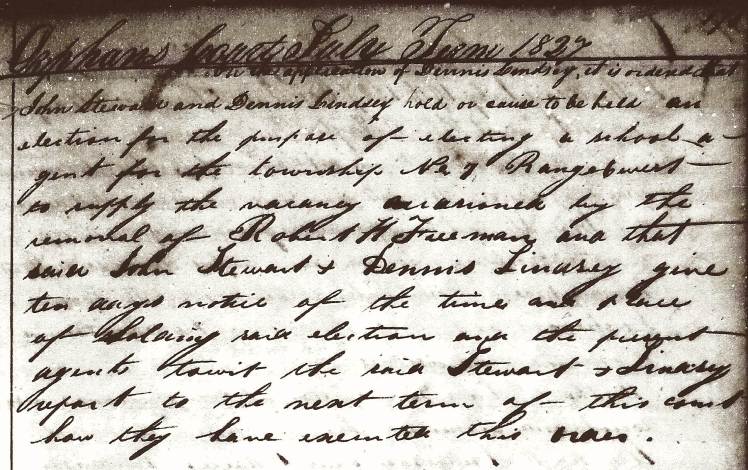 Orphans Court July Term 1827
On the application of Dennis Lindsey, it is ordered that
John Stewart and Dennis Lindsey hold or cause to be held an
election for the purpose of electing a school a-
gent for the township No 7 Range 6 west
to supply the vacancy occasioned by the
removal of Robert H Freeman and that
said John Stewart & Dennis Lindsey give
ten days notice of the time and place
of holding said election and the present
agents towit the said Stewart & Lindsey
report to the next term of this court
how they have executed this order.